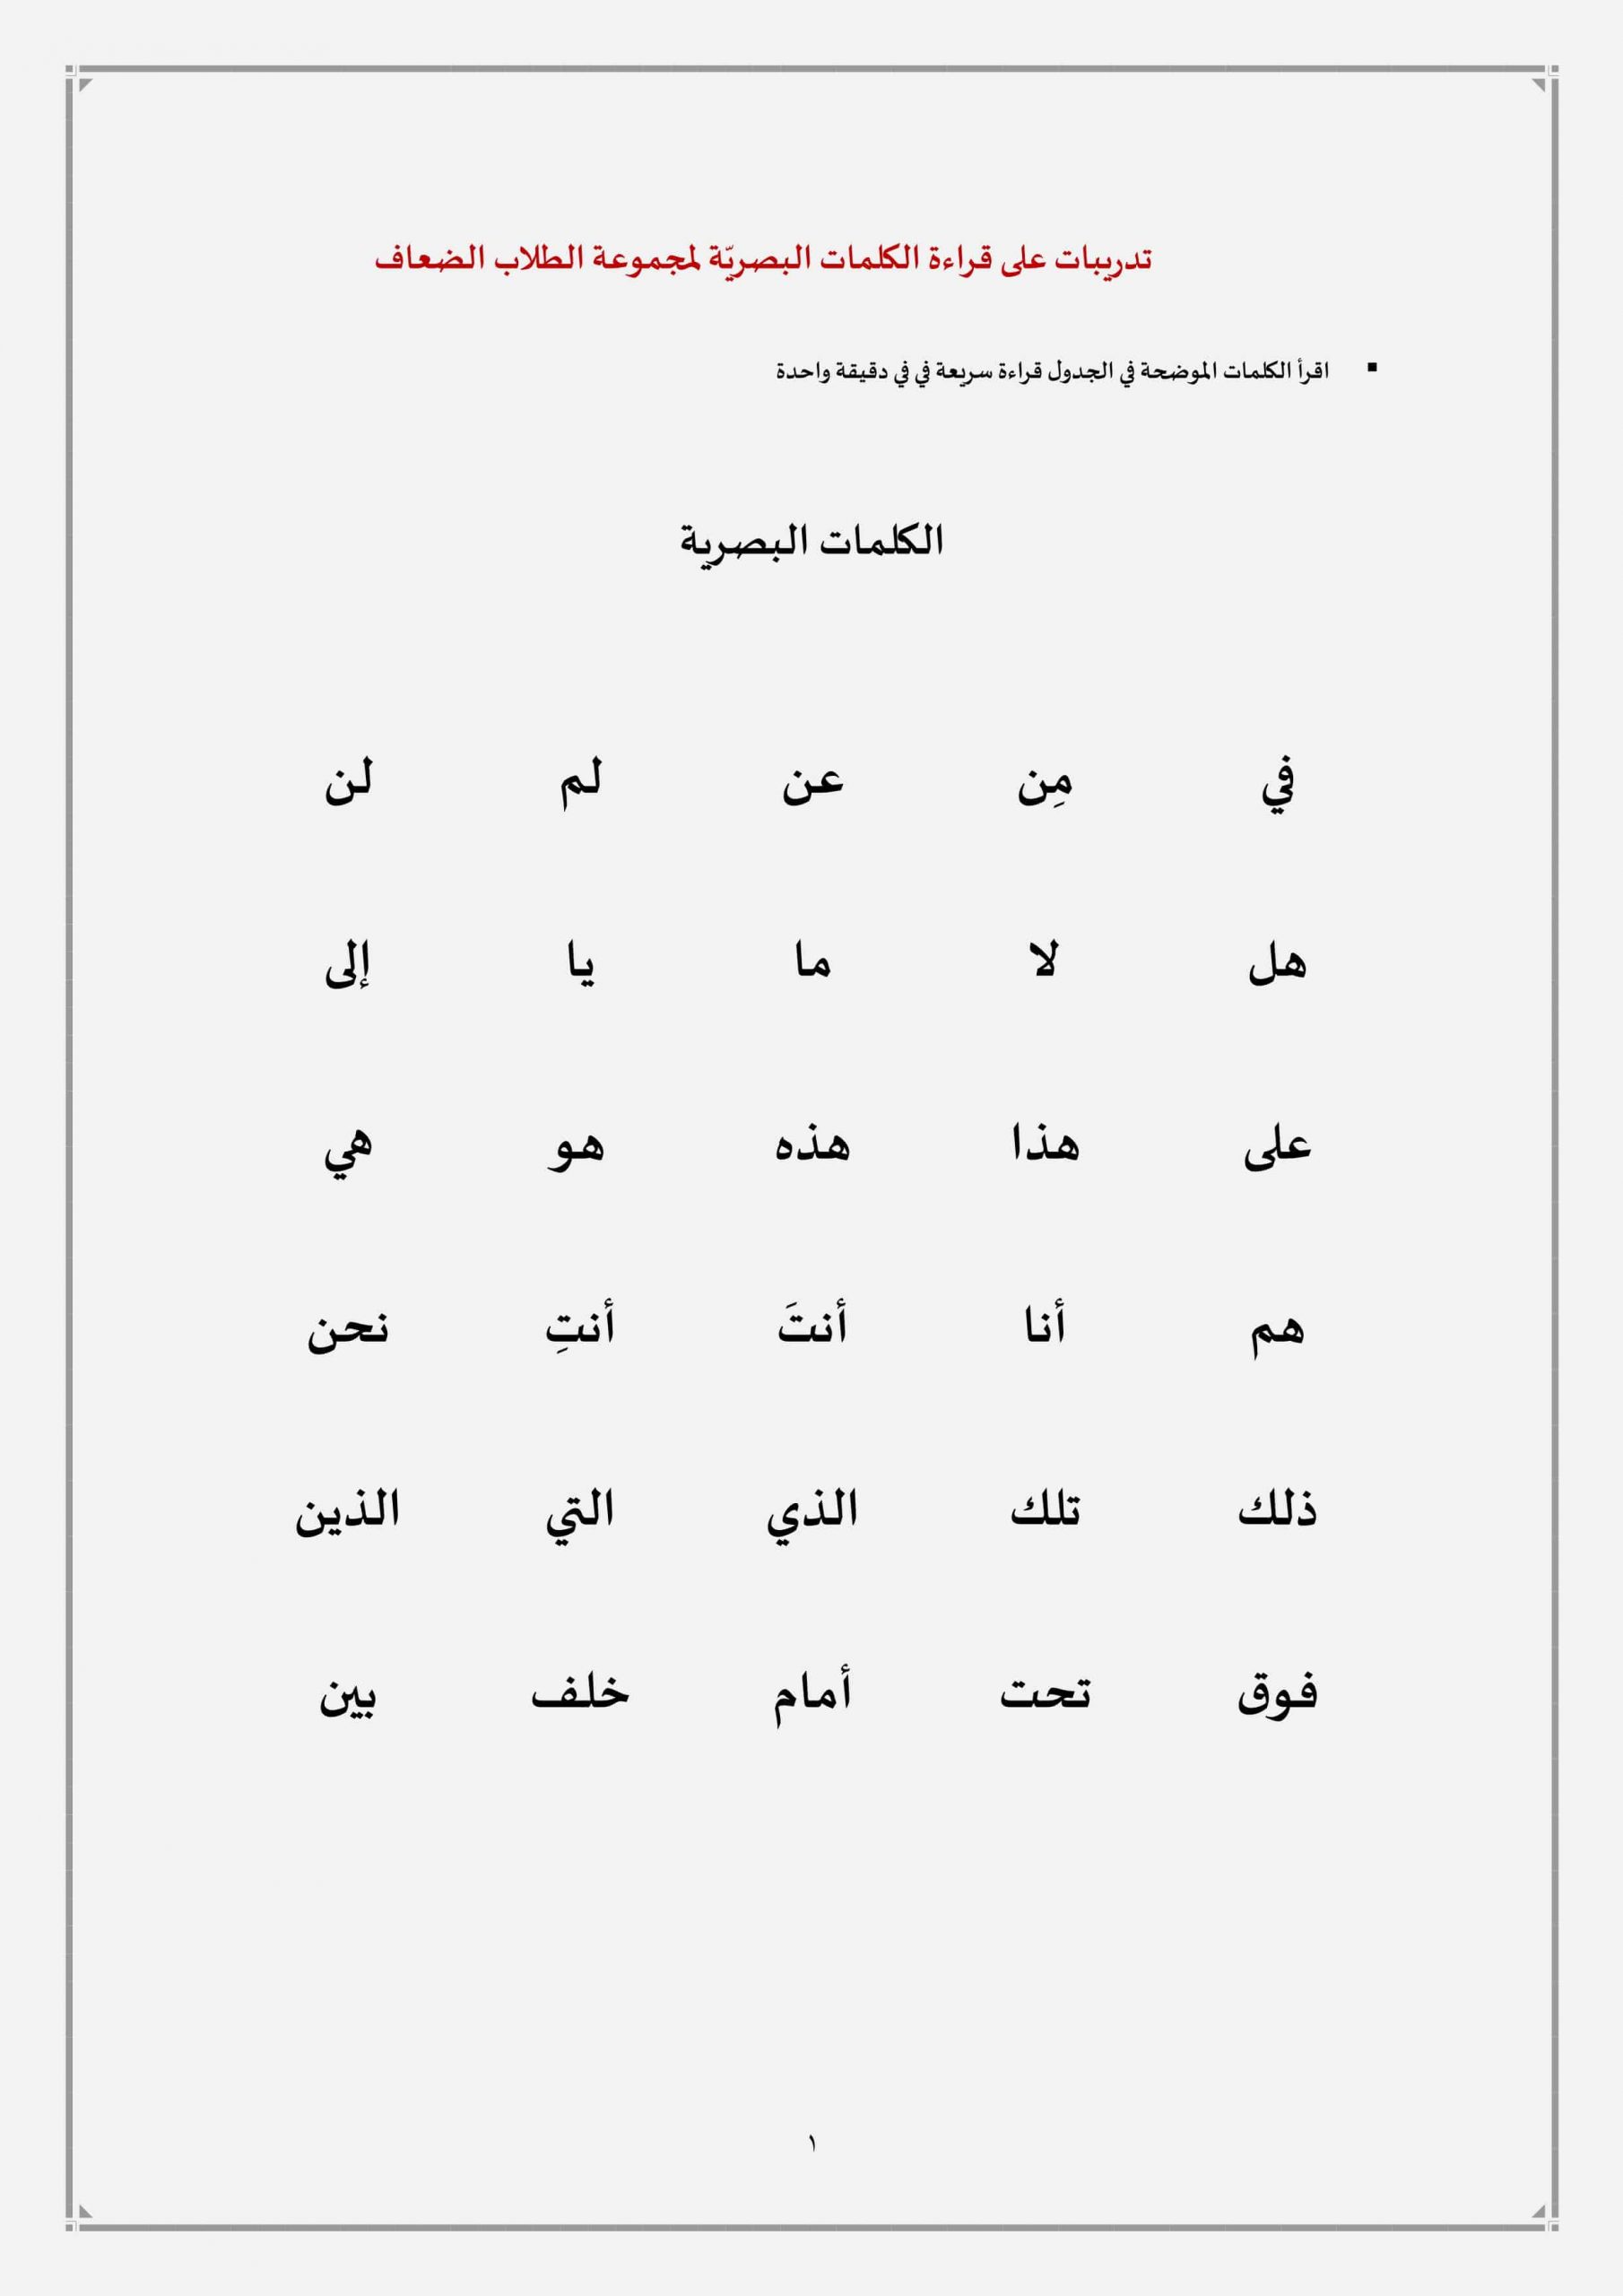 تدريبات على قراءة الكلمات البصريّة لمجموعة الطلاب الضعاف
▪ اقرأ الكلمات الموضحة في الجدول قراءة سريعة في في دقيقة واحدة
الكلمات البصرية
في مِن عن لم لن
هل لا ما يا إلى
على هذا هذه هو هي
هم أنا أنتَ أنتِ نحن
ذلك تلك الذي التي الذين
فوق تحت أمام خلف بين
١